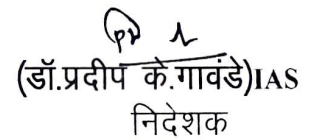 (डॉ.प्रदीप के.गावंडे)IAS
निदेशक